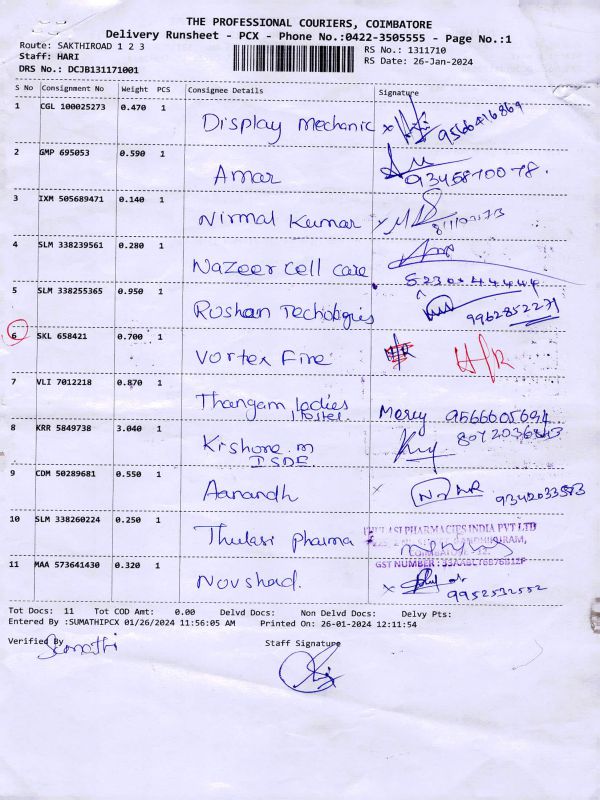 THE PROFESSIONAL COURIERS, COIMBATORE
Delivery Runsheet - PCX - Phone No.:0422-3505555 - Page No.:1
Route: SAKTHIROAD 1 2 3 RS No.: 1311710
Staff: HARI RS Date: 26-Jan-2024
DRS No.: DCJB131171001
S No Consignment No Weight PCS Consignee Details Signature
1 CGL 100025273 0.470 1 Display Mechanic x 9566416869
2 GMP 695053 0.590 1 Amar 9345870078.
3 IXM 505689471 0.140 1 Nirmal Kumar x
4 SLM 338239561 0.280 1 Nazeer cell care
5 SLM 338255365 0.950 1 Roshan Techologies 9962852271
6 SKL 658421 0.700 1 Vortex Fire H/R H/R
7 VLI 7012218 0.870 1 Thangam ladies Hostel Mercy 9566605694
8 KRR 5849738 3.040 1 Kishore.m
ISDE
9 CDM 50289681 0.550 1 Aanandh x 9342033583
10 SLM 338260224 0.250 1 Thulasi pharma THULASI PHARMACIES INDIA PVT LTD
11 MAA 573641430 0.320 1 Novshad. GST NUMBER : x 9952532552
Tot Docs: 11 Tot COD Amt: 0.00 Delvd Docs: Non Delvd Docs: Delvy Pts:
Entered By :SUMATHIPCX 01/26/2024 11:56:05 AM Printed On: 26-01-2024 12:11:54
Verified By Staff Signature
Sumathi